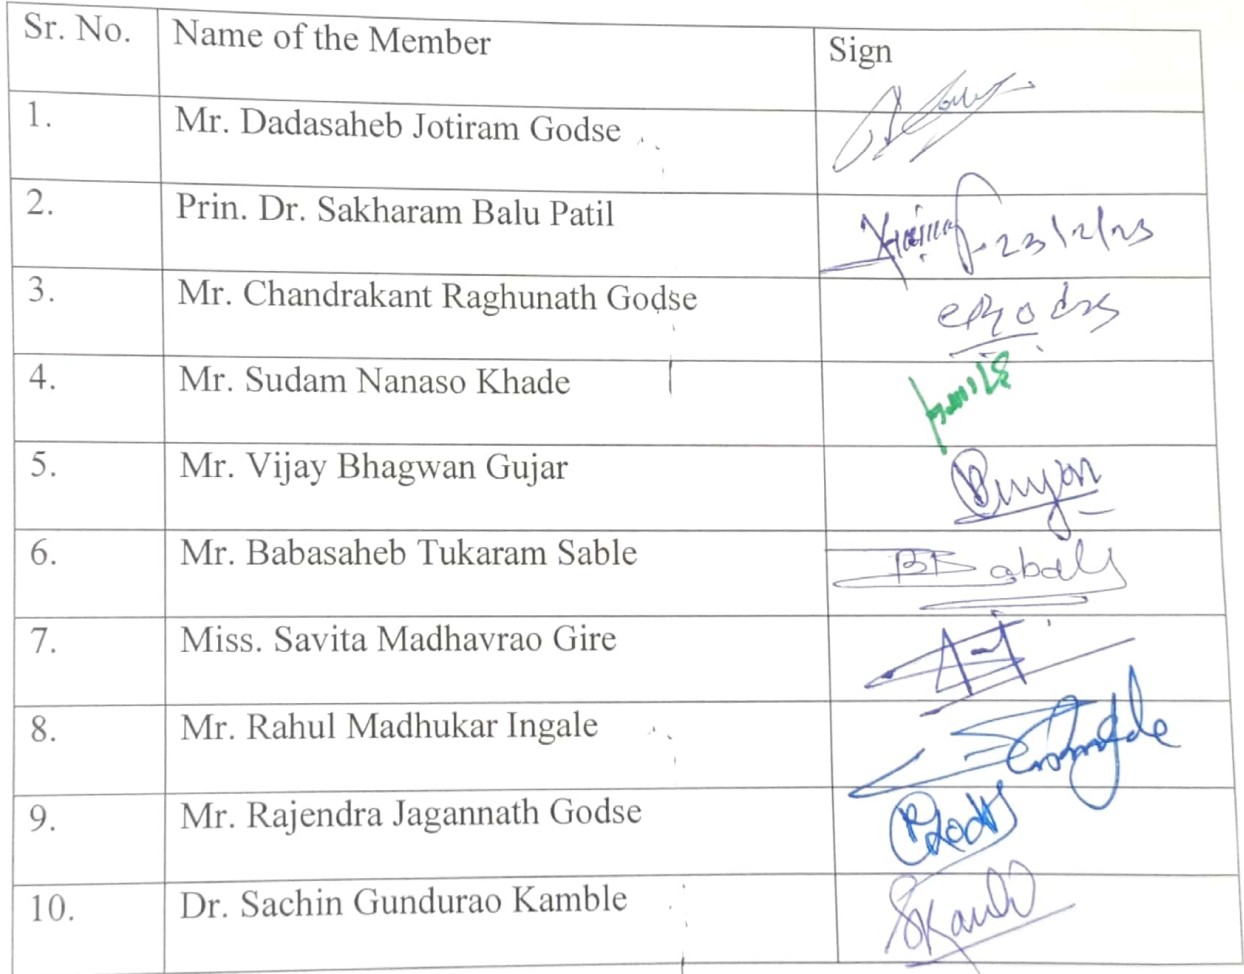 Sr. No. Name of the Member Sign
1. Mr. Dadasaheb Jotiram Godse
2. Prin. Dr. Sakharam Balu Patil 23/2/23
3. Mr. Chandrakant Raghunath Godse
4. Mr. Sudam Nanaso Khade
5. Mr. Vijay Bhagwan Gujar
6. Mr. Babasaheb Tukaram Sable
7. Miss. Savita Madhavrao Gire
8. Mr. Rahul Madhukar Ingale
9. Mr. Rajendra Jagannath Godse
10. Dr. Sachin Gundurao Kamble